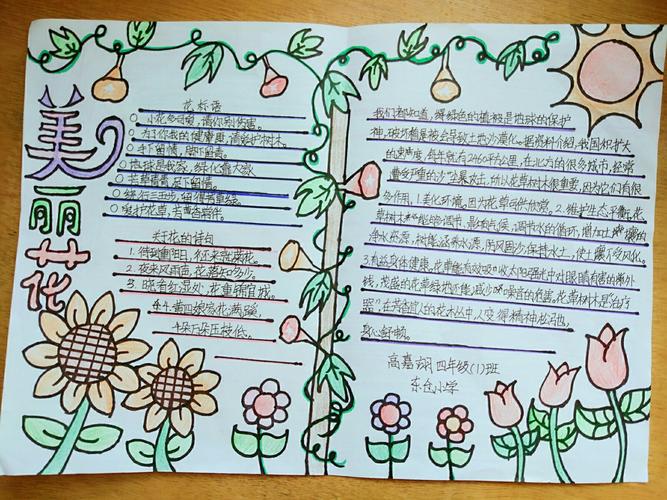 美丽花
花标语
○ 小花多可爱,请你别伤害。
○ 为了你我的健康,请爱护树木。
○ 手下留情,脚下留青。
○ 地球是我家,绿化靠大家
○ 芳草青青,足下留情。
○ 绿行三五步,留得芳草绿。
○ 爱护花草,有黄色陪伴。
关于花的诗句
1. 待到重阳日,还来就菊花。
2. 夜来风雨声,花落知多少。
3. 晓看红湿处,花重锦官城。
4. 黄四娘家花满蹊,
千朵万朵压枝低。
我们都知道,绿绿色的植被是地球的保护
神,破坏植被会导致土地沙漠化。据资料介绍,我国积扩大
的速度,每年就有2460平方公里,在北方的很多城市,经常
遭受严重的沙尘暴攻击,所以花草树木很重要,因为它们有很
多作用,1.美化环境,因为花草可供欣赏。2.维护生态平衡,花
草树木能够调节,影响气候,调节水的循环,增加土壤的
净水资源,树能涵养水源,防风固沙,保持水土,使土壤不受风化。
3.有益身体健康,花草能有效吸收太阳强光中对眼睛有害的紫外
线,茂盛的花草绿地还能减少噪音的危害,花草树木是治疗
器,在芳香宜人的花木丛中,人变得精神松弛,
身心舒畅。
高嘉翊 四年级(1)班
东仓小学